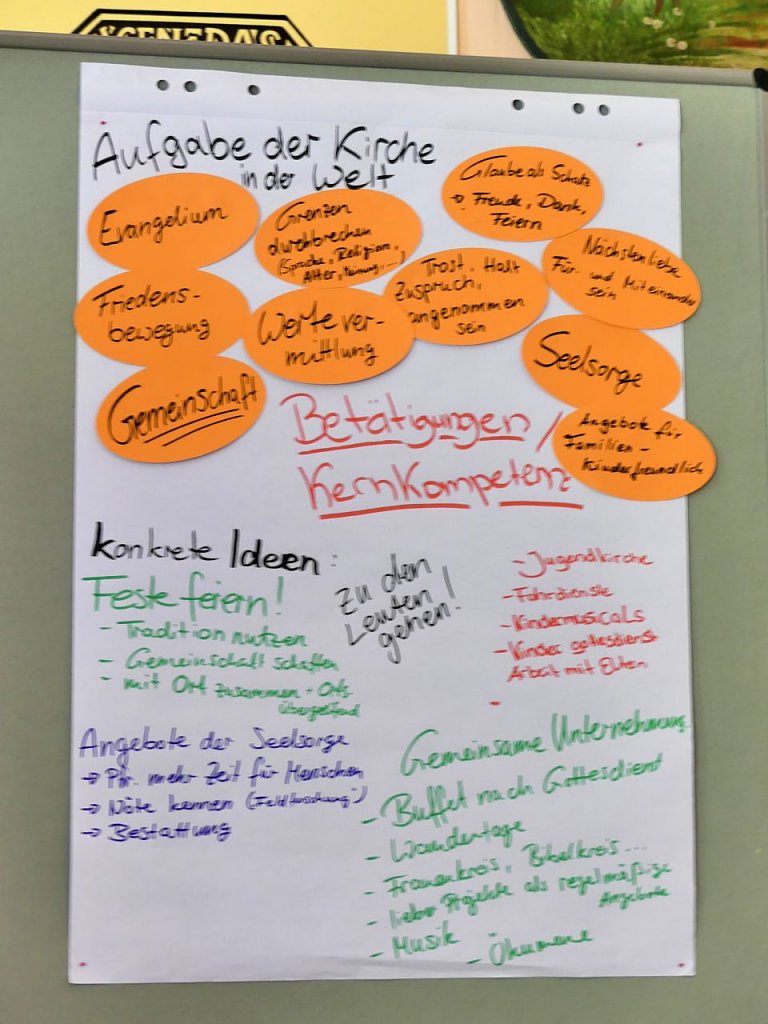 Aufgabe der Kirche
in der Welt
Evangelium
Grenzen
durchbrechen
(Sprache, Religion,
Alter, Meinung,...)
Glaube als Schatz
→ Freude, Dank,
Feiern
Friedens-
bewegung
Wertever-
mittlung
Trost, Halt
Zuspruch,
angenommen
sein
Nächstenliebe
Für- und Miteinander
sein
Gemeinschaft
Seelsorge
Angebote für
Familien -
kinderfreundlich
Betätigungen/
Kernkompetenz
Konkrete Ideen:
Feste feiern!
- Tradition nutzen
- Gemeinschaft schaffen
- mit Ort zusammen + Orts
übergreifend
Zu den
Leuten
gehen!
- Jugendkirche
- Fahrdienste
- Kindermusicals
- Kindergottesdienst
Arbeit mit Eltern
-
Angebote der Seelsorge
→ Pfr. mehr Zeit für Menschen
→ Nöte kennen ("Feldforschung")
→ Bestattung
Gemeinsame Unternehmung
- Buffet nach Gottesdienst
- Wandertage
- Frauenkreis, Bibelkreis...
- lieber Projekte als regelmäßige
Angebote
- Musik
- Ökumene